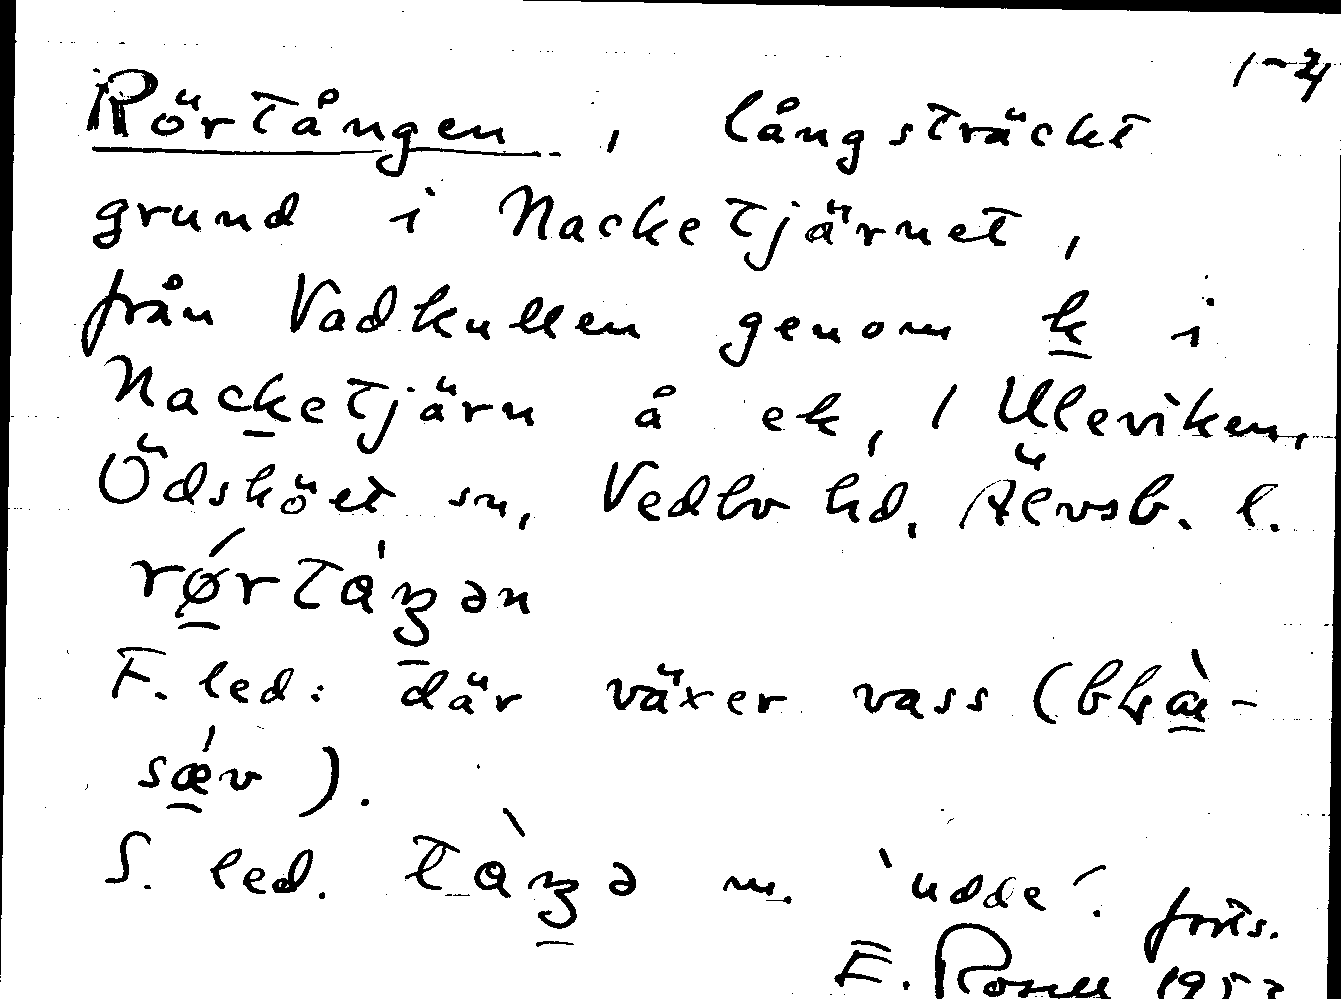 1-2
Rörtången, långsträckt
grund i Nacketjärnet,
från Vadkullen genom k i
Nacketjärn å ek, / Uleviken,
Ödsköet sn, Vedbo hd, Älvsb. l.
F. led: där växer vass (
S. led. m. 'udde'. forts.
E. Rosell